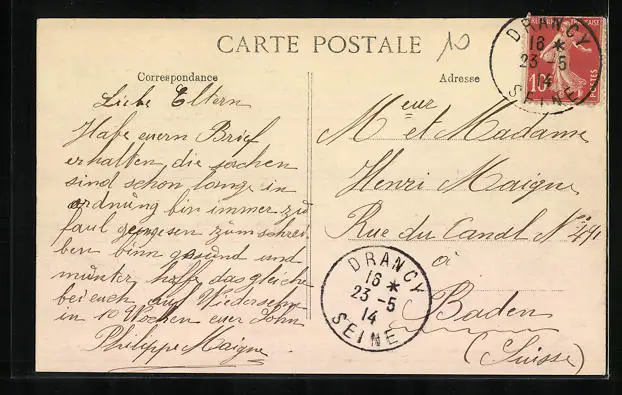 CARTE POSTALE
10
Correspondance
Adresse
Liebe Eltern
Habe euern Brief
erhalten, die sachen
sind schon lange in
ordnung bin immer zu
faul gewesen zum schrei
ben binn gesund und
munter, hoffe das gleiche
bei euch auf Wiedersehn
in 10 Wochen euer Sohn
Philippe Maigne
Meur et Madame
Henri Maigne
Rue du Canal N°
à
Baden
(Suisse)
FRANÇAISE
10
POSTES
DRANCY
16 *
23 - 5
14
SEINE
DRANCY
16 *
23 - 5
14
SEINE